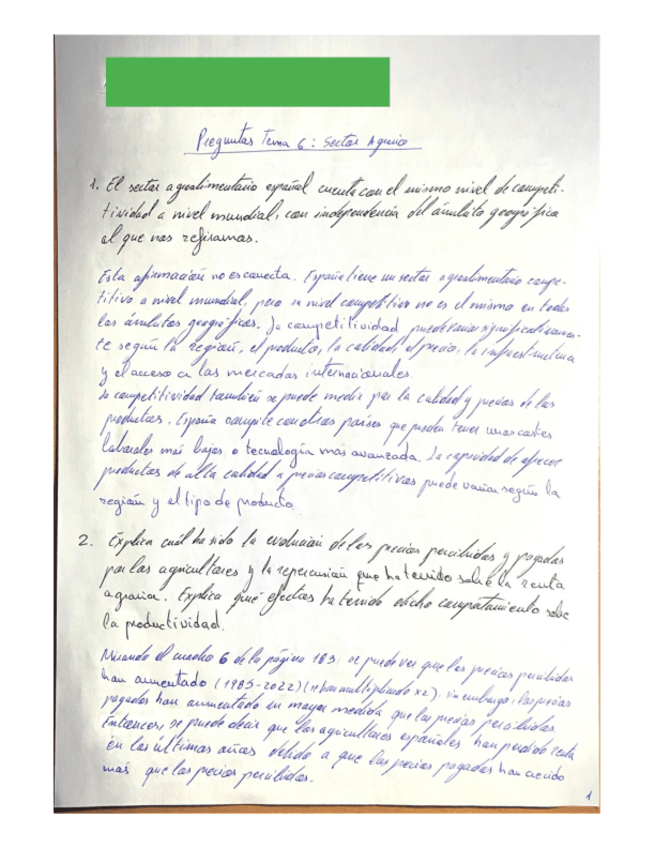 Preguntas Tema 6: Sector Agrario
1. El sector agroalimentario español cuenta con el mismo nivel de competi-
tividad a nivel mundial, con independencia del ámbito geográfico
al que nos refiramos.
Esta afirmación no es correcta. España tiene un sector agroalimentario compe-
titivo a nivel mundial, pero su nivel competitivo no es el mismo en todos
los ámbitos geográficos. La competitividad puede variar significativamen-
te según la región, el producto, la calidad, el precio, la infraestructura
y el acceso a los mercados internacionales.
La competitividad también se puede medir por la calidad y precios de los
productos. España compite con otros países que pueden tener unos costes
laborales más bajos o tecnología más avanzada. La capacidad de ofrecer
productos de alta calidad a precios competitivos puede variar según la
región y el tipo de producto.
2. Explica cuál ha sido la evolución de los precios percibidos y pagados
por los agricultores y la repercusión que ha tenido sobre la renta
agraria. Explica qué efectos ha tenido dicho comportamiento sobre
la productividad.
Mirando el cuadro 6 de la página 183, se puede ver que los precios percibidos
han aumentado (1985-2022) (se han multiplicado x2), sin embargo, los precios
pagados han aumentado en mayor medida que los precios percibidos.
Entonces, se puede decir que los agricultores españoles han perdido renta
en los últimos años debido a que los precios pagados han crecido
más que los precios percibidos.
1